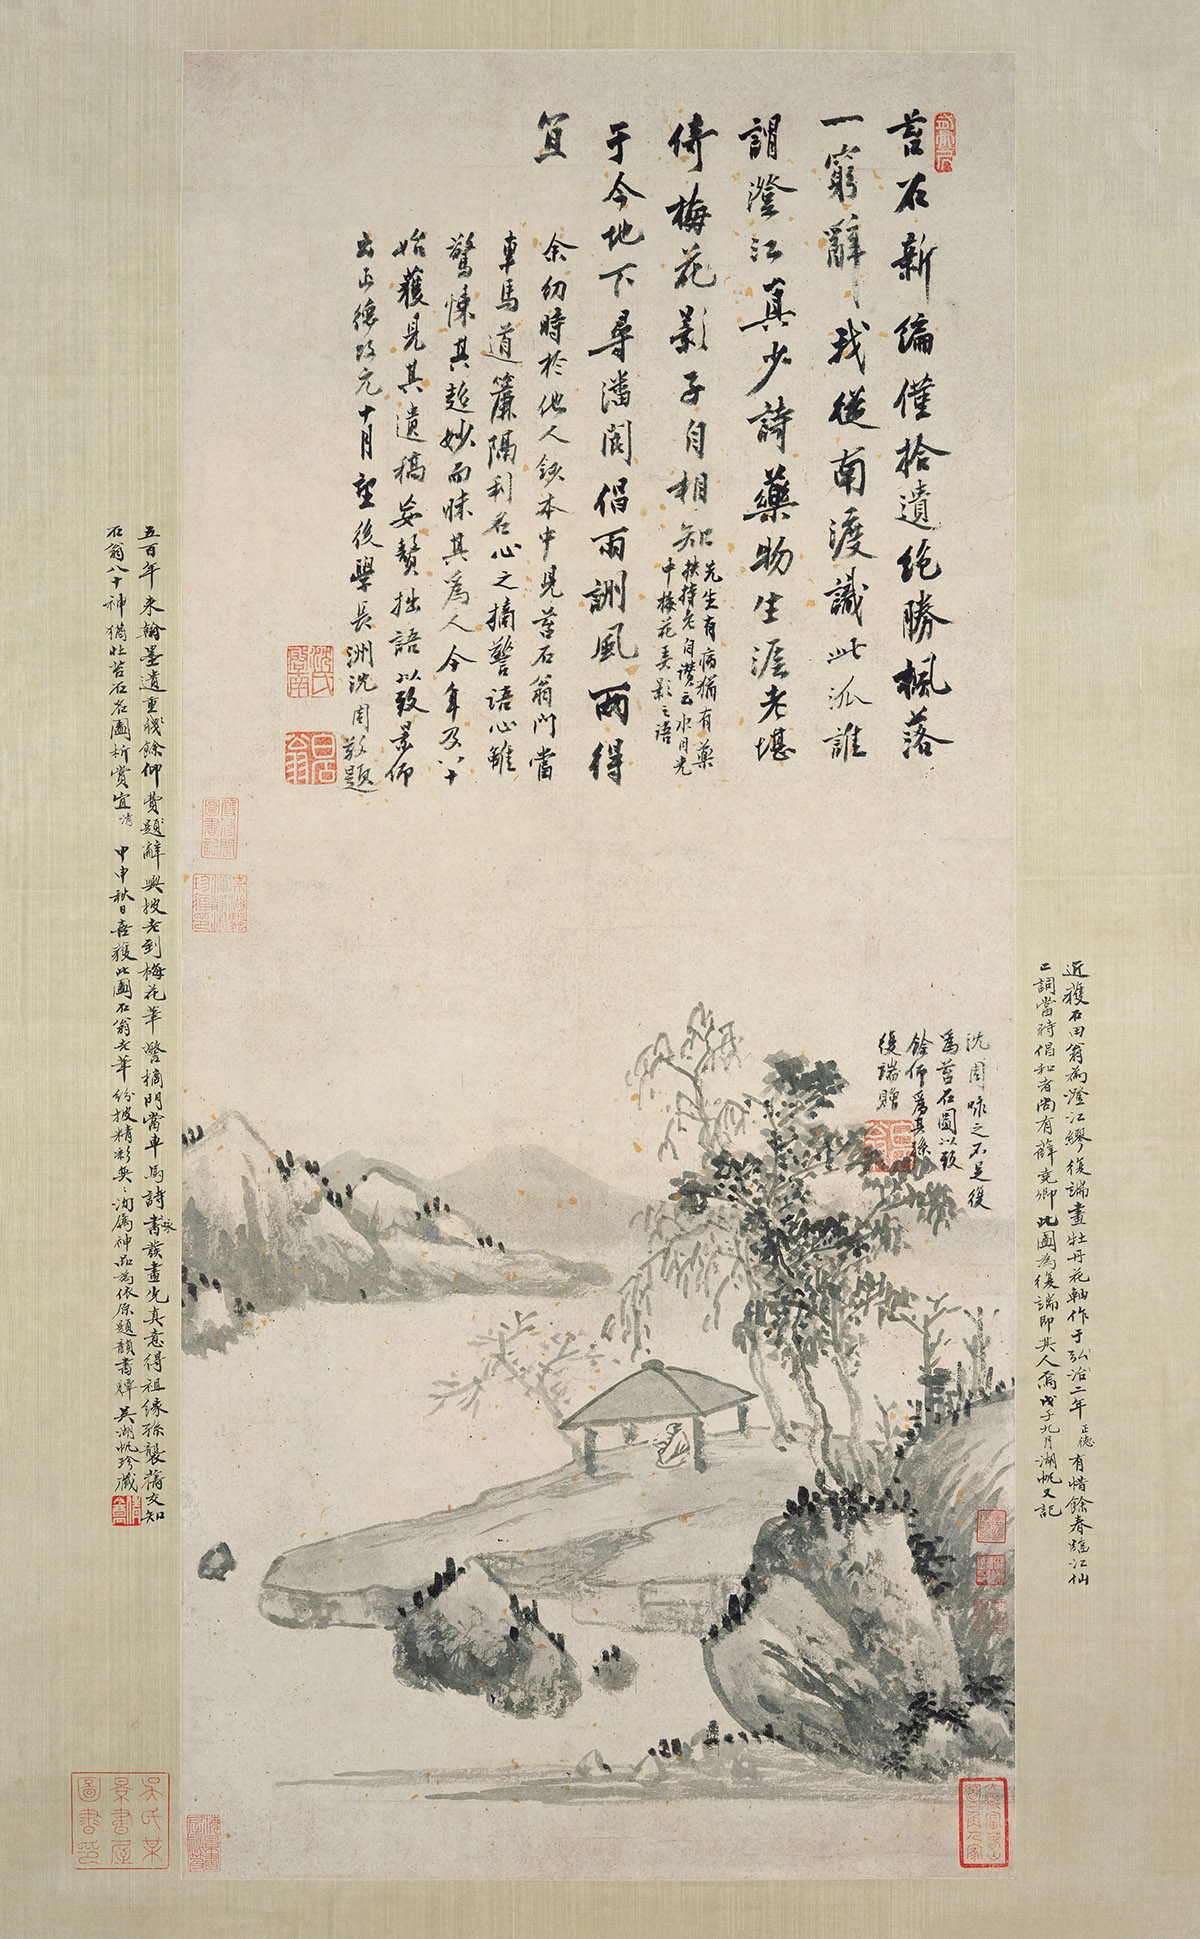 苔石新編僅拾遺絶勝楓落
一窮辭我從南渡識此派誰
謂澄江真少詩藥物生涯老堪
倚梅花影子自相知
先生有病猶有藥
扶持老自讚云水月光
中梅花弄影之語
于今地下尋潘閬倡雨詶風兩得
宜
余幼時於他人鈔本中見苔石翁門當
車馬道簾隔利名心之摘警語心雖
驚悚其超妙而昧其為人今年及八十
始獲見其遺稿妄贅拙語以致景仰
云正德改元十月望後學長洲沈周敬題
沈周咏之不足復
爲苔石圖以致
餘仰爲其孫
復端贈
近獲石田翁為澄江繆復端畫牡丹花軸作于弘治二年正德有惜餘春臨江仙
二詞當時倡和者尚有薛堯卿此圖為復端即其人焉戊子九月湖帆又記
五百年来翰墨遺重賤餘仰費題辭興披老到梅花筆警摘門當車馬詩書咏發畫光真意得祖緣孫襲舊交知
石翁八十神猶壯苔石名圖析賞宜清 甲申秋日喜獲此圖石翁老筆紛披精彩奕〻洵屬神品為依原題韻書綷 吳湖帆珍藏
吳氏某
景書屋
圖書印